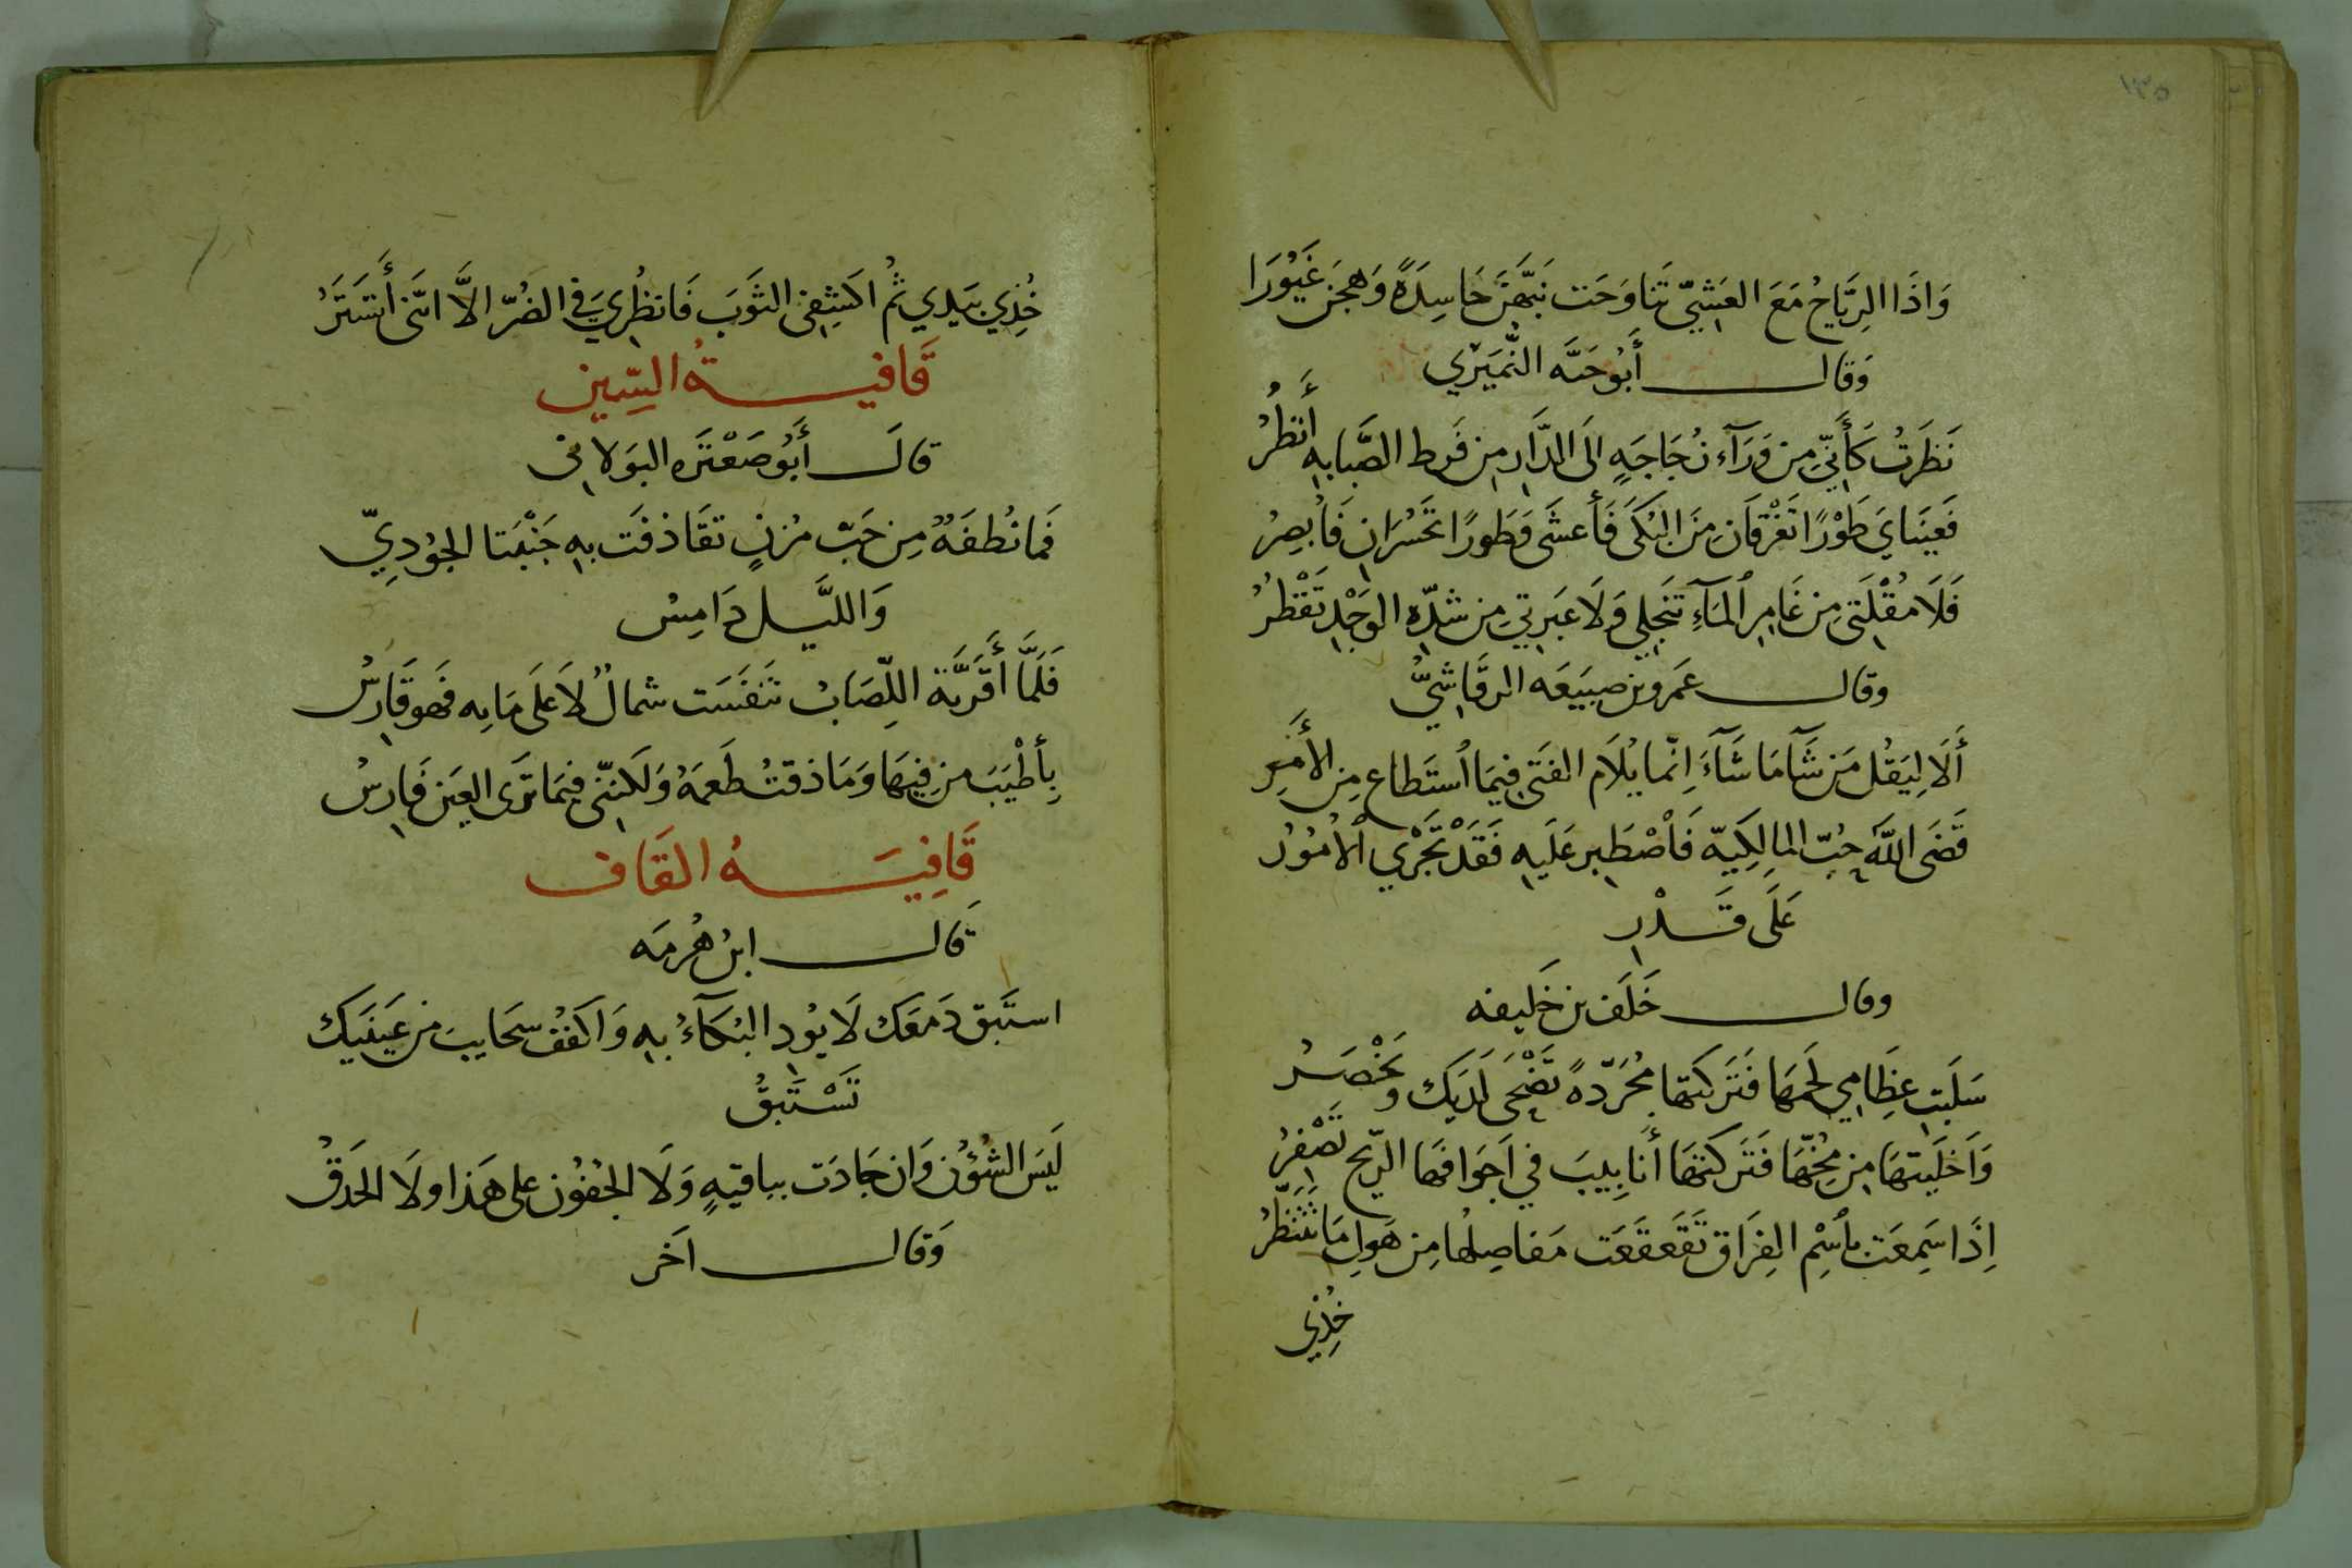 ١٣٥
وَاذَا الرِّيَاحُ مَعَ العَشِيِّ تَنَاوَحَت نَبَّهْنَ حَاسِدَةً وَهِجنَ غَيُورَا
وَقَال أَبُو حَيَّه النُّمَيْرِي
نَظَرتُ كَأَنِّي مِن وَرَآء زُجَاجَةٍ الَى الدَّارِ مِن فَرط الصَّبابه أَنظُرُ
فَعَينَايَ طَوْرًا تَغْرَقَانِ مِنَ البُكَى فَأَعشَى وَطَورًا تَحْسُرَانِ فَأُبصِرُ
فَلَا مُقْلَتِي مِن غَامِرِ المَآءِ تَنجَلِي وَلَا عَبرَتِي مِن شدّه الوَجْدِ تَقْطُرُ
وقال عَمرو بن ضبيَعَه الرَّقَاشيُّ
أَلَا لِيَقُل مَن شَآ مَا شَآءَ اِنّما يُلَام الفَتَى فِيمَا اُستَطاع مِن الأَمْرِ
قَضَى اللَّهُ حُبّ المالِكِيّه فَاُصْطَبِر عَلَيهِ فَقَدْ تَجْرِي الْأُمُوُرُ
عَلَى قَدْرِ
وقال خَلَف بن خَلِيفه
سَلَبتِ عِظَامِي لَحمَهَا فَتَرَكتَهَا مُجَرّدهً تَضْحَى لَدَيكِ وَتَخْصَرُ
وَاَخلَيتهَا مِن مُخِّهَا فَتَرَكتهَا أَنَابِيبَ في اَجوَافهَا الرّيح تَصْفِرُ
اِذَا سَمِعَت بِاُسْمِ الفِرَاق تَقَعقَعَت مَفاصِلُها مِن هَولِ مَا تَتَنَظَّرُ
خُذِي
خُذِي بِيَدِي ثُم اكشِفِي الثَوبَ فَانظُرِي فِي الضُرّ الاَّ انّني أَتَسَتَّرُ
قَافيةُ السِّين
قالَ أَبُو صَعْتَرَه البَولاني
فَما نُطفَةٌ مِن حَبّ مُزنٍ تَقَاذفَت بِهِ جَنْبَتا الجُودِيِّ
وَاللَّيل دَامِسُ
فَلَمَّا أَقَرَّتهُ اللِّصَابُ تَنَفَّسَت شمالٌ لاَعلَى مَايه فَهوَ قَارِسُ
بِأَطْيَبَ مِن فِيهَا وَمَا ذقتُ طَعمَهُ وَلَكنّنِي فِيمَا تَرَى العَين فَارِسُ
قَافِيَةُ القَاف
قَال ابن هُرمَه
استَبق دَمعَك لَا يُودِ البُكَآءُ بهِ وَاكفُف سَحَايبَ من عَينَيك
تَسْتَبِقُ
لَيسَ الشُؤُن وَان جَادَت بباقيهٍ وَلَا الجُفُون على هَذا ولَا الحَدَقُ
وَقَال اَخَر